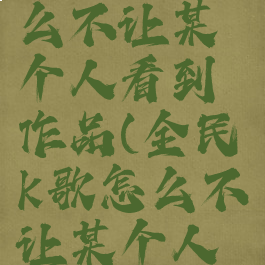 么不让某
个人看到
作品(全民
k歌怎么不
让某个人